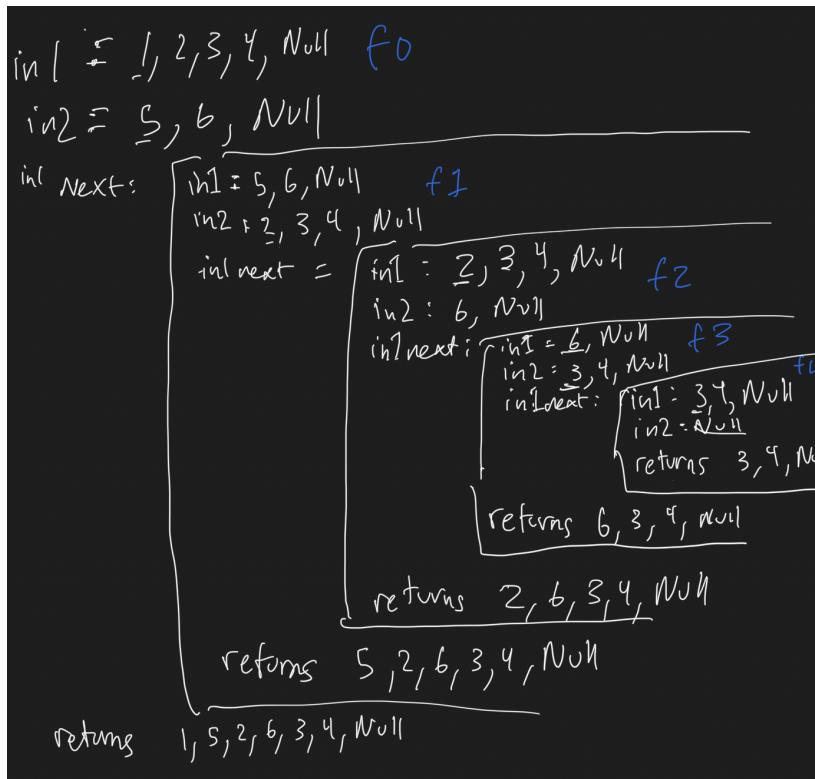 in1 = 1, 2, 3, 4, Null f0
in2 = 5, 6, Null
in1 Next:
in1 = 5, 6, Null f1
in2 : 2, 3, 4, Null
in1next =
in1 : 2, 3, 4, Null f2
in2 : 6, Null
in1next :
in1 = 6, Null f3
in2 = 3, 4, Null
in1next :
in1 = 3, 4, Null
in2 = Null
returns 3, 4,
returns 6, 3, 4, Null
returns 2, 6, 3, 4, Null
returns 5, 2, 6, 3, 4, Null
returns 1, 5, 2, 6, 3, 4, Null